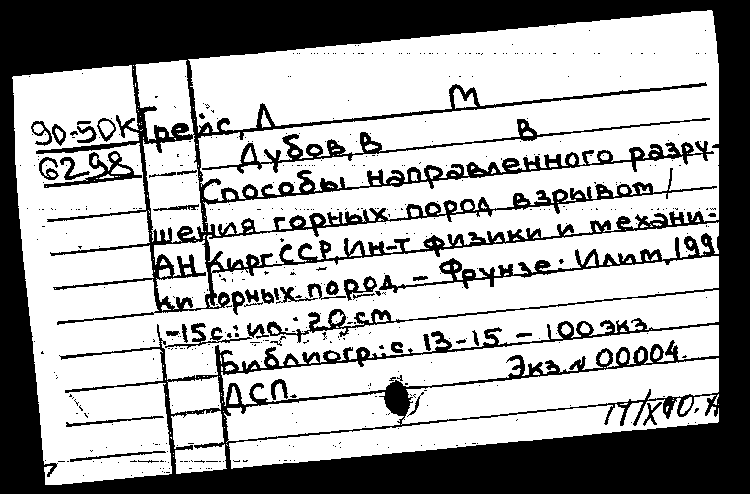 90-50К Грейс, Л М
62-98 Дубов, В В
Способы направленного разру-
шения горных пород взрывом /
АН Кирг ССР, Ин-т физики и механи-
ки горных пород. – Фрунзе: Илим, 1990
-15 с.: ил.; 20 см.
Библиогр.: с. 13-15. – 100 экз.
ДСП. Экз. № 00004.